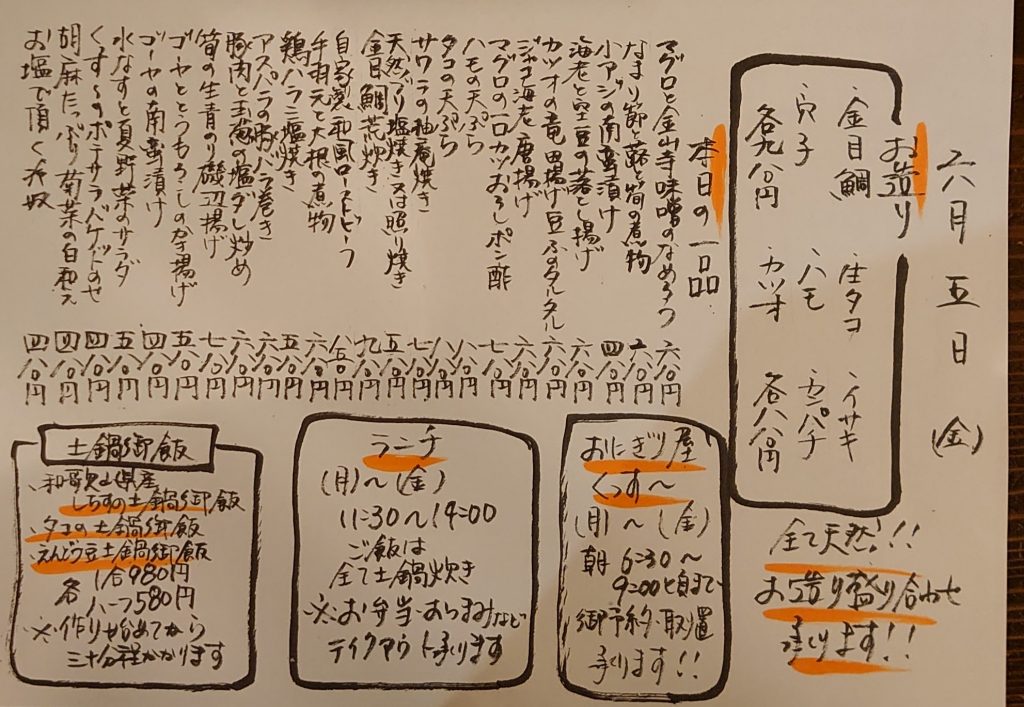 六月五日(金)
お造り
金目鯛 庄タコ イサキ
穴子 ハモ カンパチ
各九八〇円 カツオ 各八八〇円
全て天然!!
お造り盛り合わせ
承ります!!
本日の一品
マグロと金山寺味噌のなめろう 六八〇円
なまり節と蕗と筍の煮物 六八〇円
小アジの南蛮漬け 四八〇円
海老と空豆の落とし揚げ 六八〇円
カツオの竜田揚げ豆ふのタルタル 六八〇円
ジャコ海老唐揚げ 六八〇円
マグロの一口カツおろしポン酢 七八〇円
ハモの天ぷら 八八〇円
タコの天ぷら 八八〇円
サワラの柚庵焼き 七八〇円
天然ぶり塩焼き又は照り焼き
金目鯛荒炊き
自家製和風ローストビーフ
手羽元と大根の煮物
鶏ハラミ塩焼き
アスパラの豚バラ巻き
豚肉と玉葱の塩ダレ炒め
筍の生青のり磯辺揚げ
ゴーヤととうもろこしのかき揚げ
ゴーヤの南蛮漬け
水なすと夏野菜のサラダ
くすーのポテサラバケットのせ
胡麻たっぷり菊菜の白和え 四八〇円
お塩で頂く冷奴 四八〇円
おにぎり屋
くっすー
(月)〜(金)
朝 6:30〜
9:00頃まで
御予約・取置
承ります!!
ランチ
(月)〜(金)
11:30〜14:00
ご飯は
全て土鍋炊き
※お弁当・おつまみなど
テイクアウト承ります
土鍋御飯
・和歌山県産
しらすの土鍋御飯
・タコの土鍋御飯
・えんどう豆土鍋御飯
各 1合980円
ハーフ580円
※作り始めてから
三十分程かかります